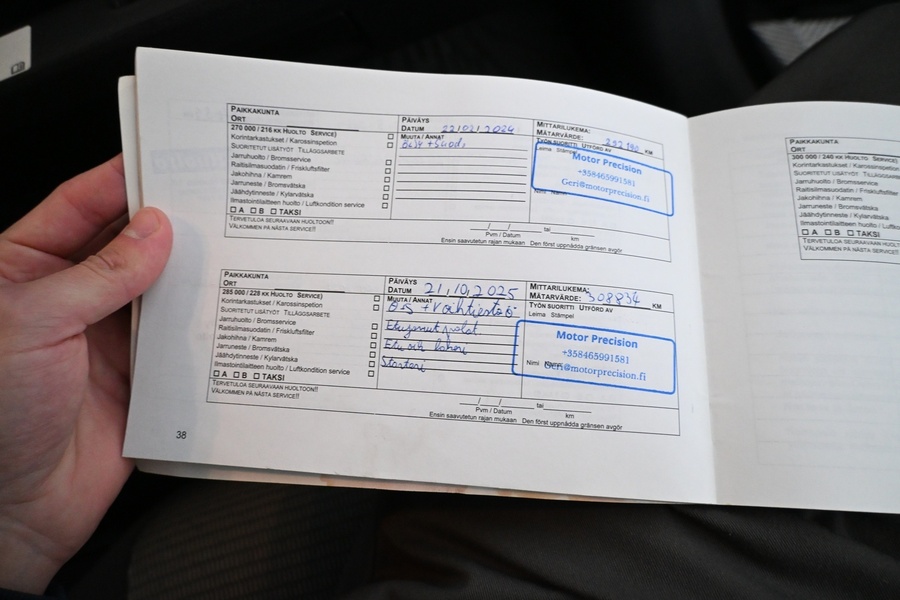 PAIKKAKUNTA
ORT
PÄIVÄYS
DATUM 22/02/2024
MITTARILUKEMA:
MÄTARVÄRDE: KM
270 000 / 216 KK HUOLTO SERVICE)
Korintarkastukset / Karossinspetion
SUORITETUT LISÄTYÖT TILLÄGGSARBETE
Jarruhuolto / Bromsservice
Raitisilmasuodatin / Friskluftsfilter
Jakohihna / Kamrem
Jarruneste / Bromsvätska
Jäähdytinneste / Kylarvätska
Ilmastointilaitteen huolto / Luftkondition service
A B TAKSI
TERVETULOA SEURAAVAAN HUOLTOON!!
VÄLKOMMEN PÅ NÄSTA SERVICE!!
MUUTA / ANNAT
Öljy + Suod.
TYÖN SUORITTI UTFÖRD AV
Leima Stämpel
Motor Precision
+358465991581
Geri@motorprecision.fi
Nimi
__/__/__ tai ______
Pvm / Datum km
Ensin saavutetun rajan mukaan Den först uppnådda gränsen avgör
PAIKKAKUNTA
ORT
PÄIVÄYS
DATUM 21,10,2025
MITTARILUKEMA:
MÄTARVÄRDE: 308834 KM
285 000 / 228 KK HUOLTO SERVICE)
Korintarkastukset / Karossinspetion
SUORITETUT LISÄTYÖT TILLÄGGSARBETE
Jarruhuolto / Bromsservice
Raitisilmasuodatin / Friskluftsfilter
Jakohihna / Kamrem
Jarruneste / Bromsvätska
Jäähdytinneste / Kylarvätska
Ilmastointilaitteen huolto / Luftkondition service
A B TAKSI
TERVETULOA SEURAAVAAN HUOLTOON!!
VÄLKOMMEN PÅ NÄSTA SERVICE!!
MUUTA / ANNAT
Ö-S + Vaihteistoö
Etujarrut palat
Startteri
TYÖN SUORITTI UTFÖRD AV
Leima Stämpel
Motor Precision
+358465991581
Nimi Geri@motorprecision.fi
__/__/__ tai ______
Pvm / Datum km
Ensin saavutetun rajan mukaan Den först uppnådda gränsen avgör
38
PAIKKAKUNTA
ORT
300 000 / 240 KK HUOLTO SERV
Korintarkastukset / Karossinspe
SUORITETUT LISÄTYÖT TILLÄGGSA
Jarruhuolto / Bromsservice
Raitisilmasuodatin / Friskluftsf
Jakohihna / Kamrem
Jarruneste / Bromsvätska
Jäähdytinneste / Kylarvätska
Ilmastointilaitteen huolto / Luftko
A B TAKSI
TERVETULOA SEURAAVAAN HUOLTO
VÄLKOMMEN PÅ NÄSTA SERVICE!!